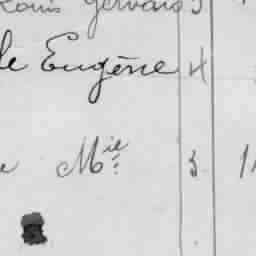 Louis Gervais 5
le Eugène 4
e Mie 3 1